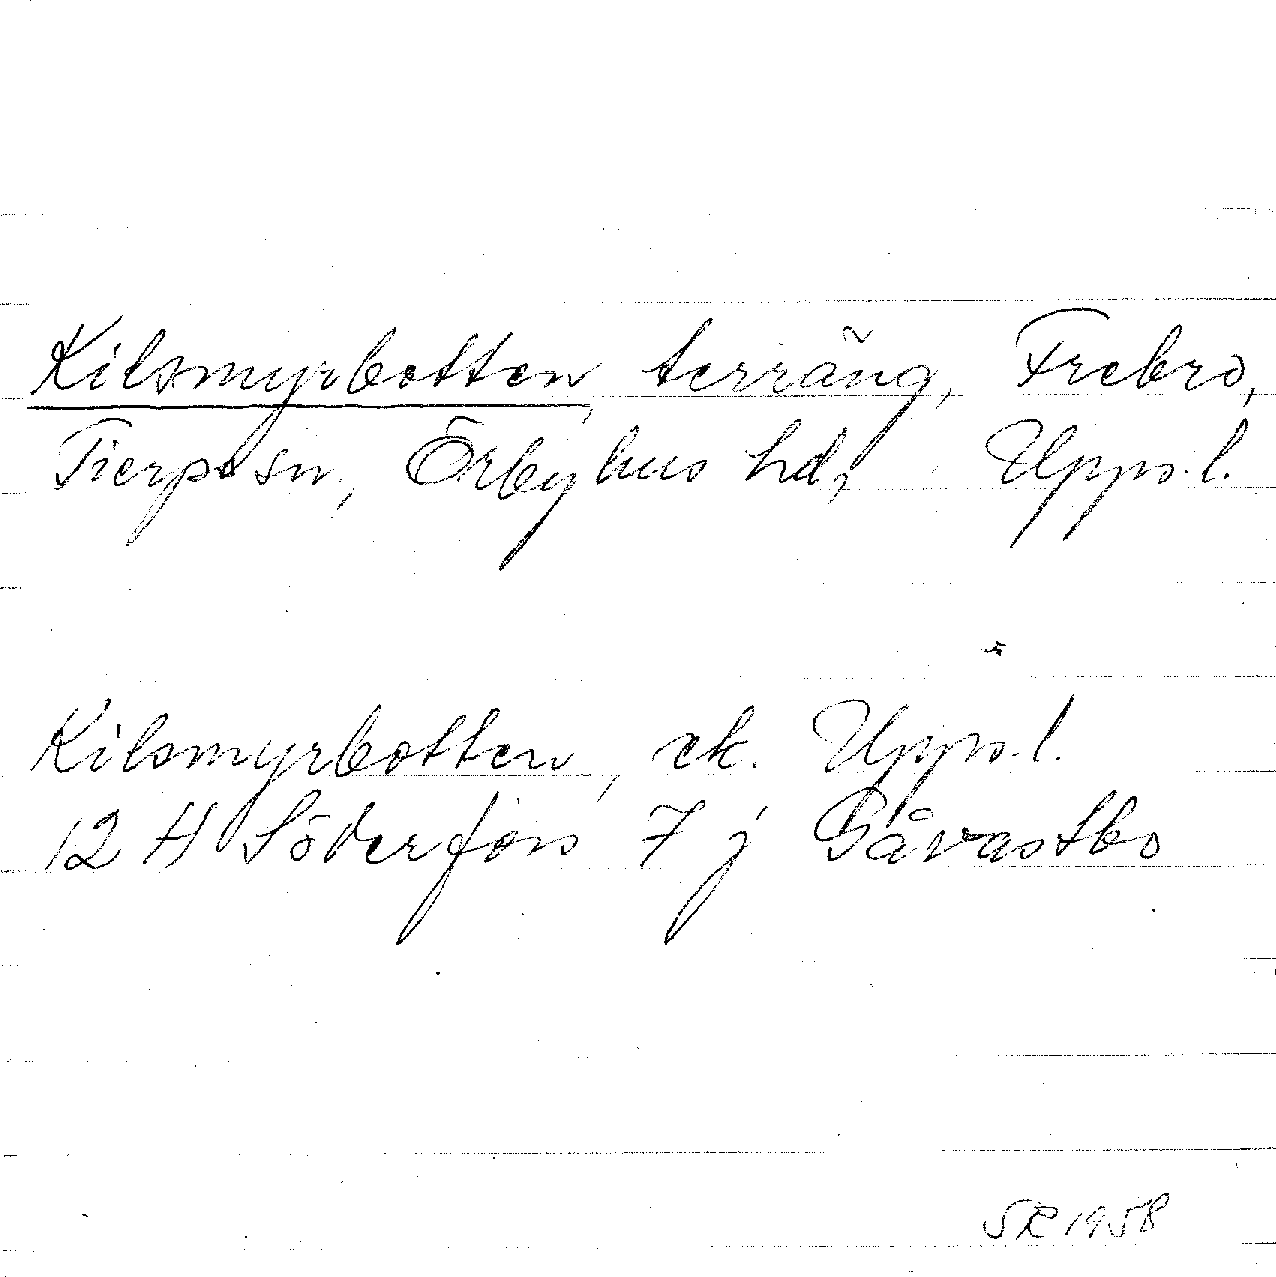 Kilsmyrbotten, terräng, Frebro,
Tierps sn, Örbyhus hd, Uppl.
Kilsmyrbotten, ek. Uppl.
12 H Söderfors 7 j Gåvastbo
SR 1958